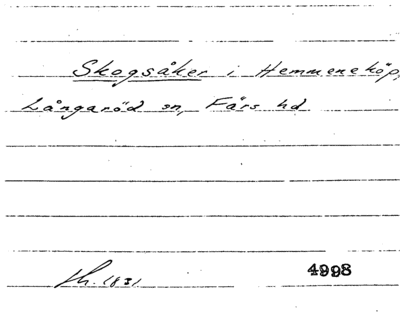 Skogsåker i Hemmeneköp,
Långaröd sn, Färs hd
h. 1831
4998